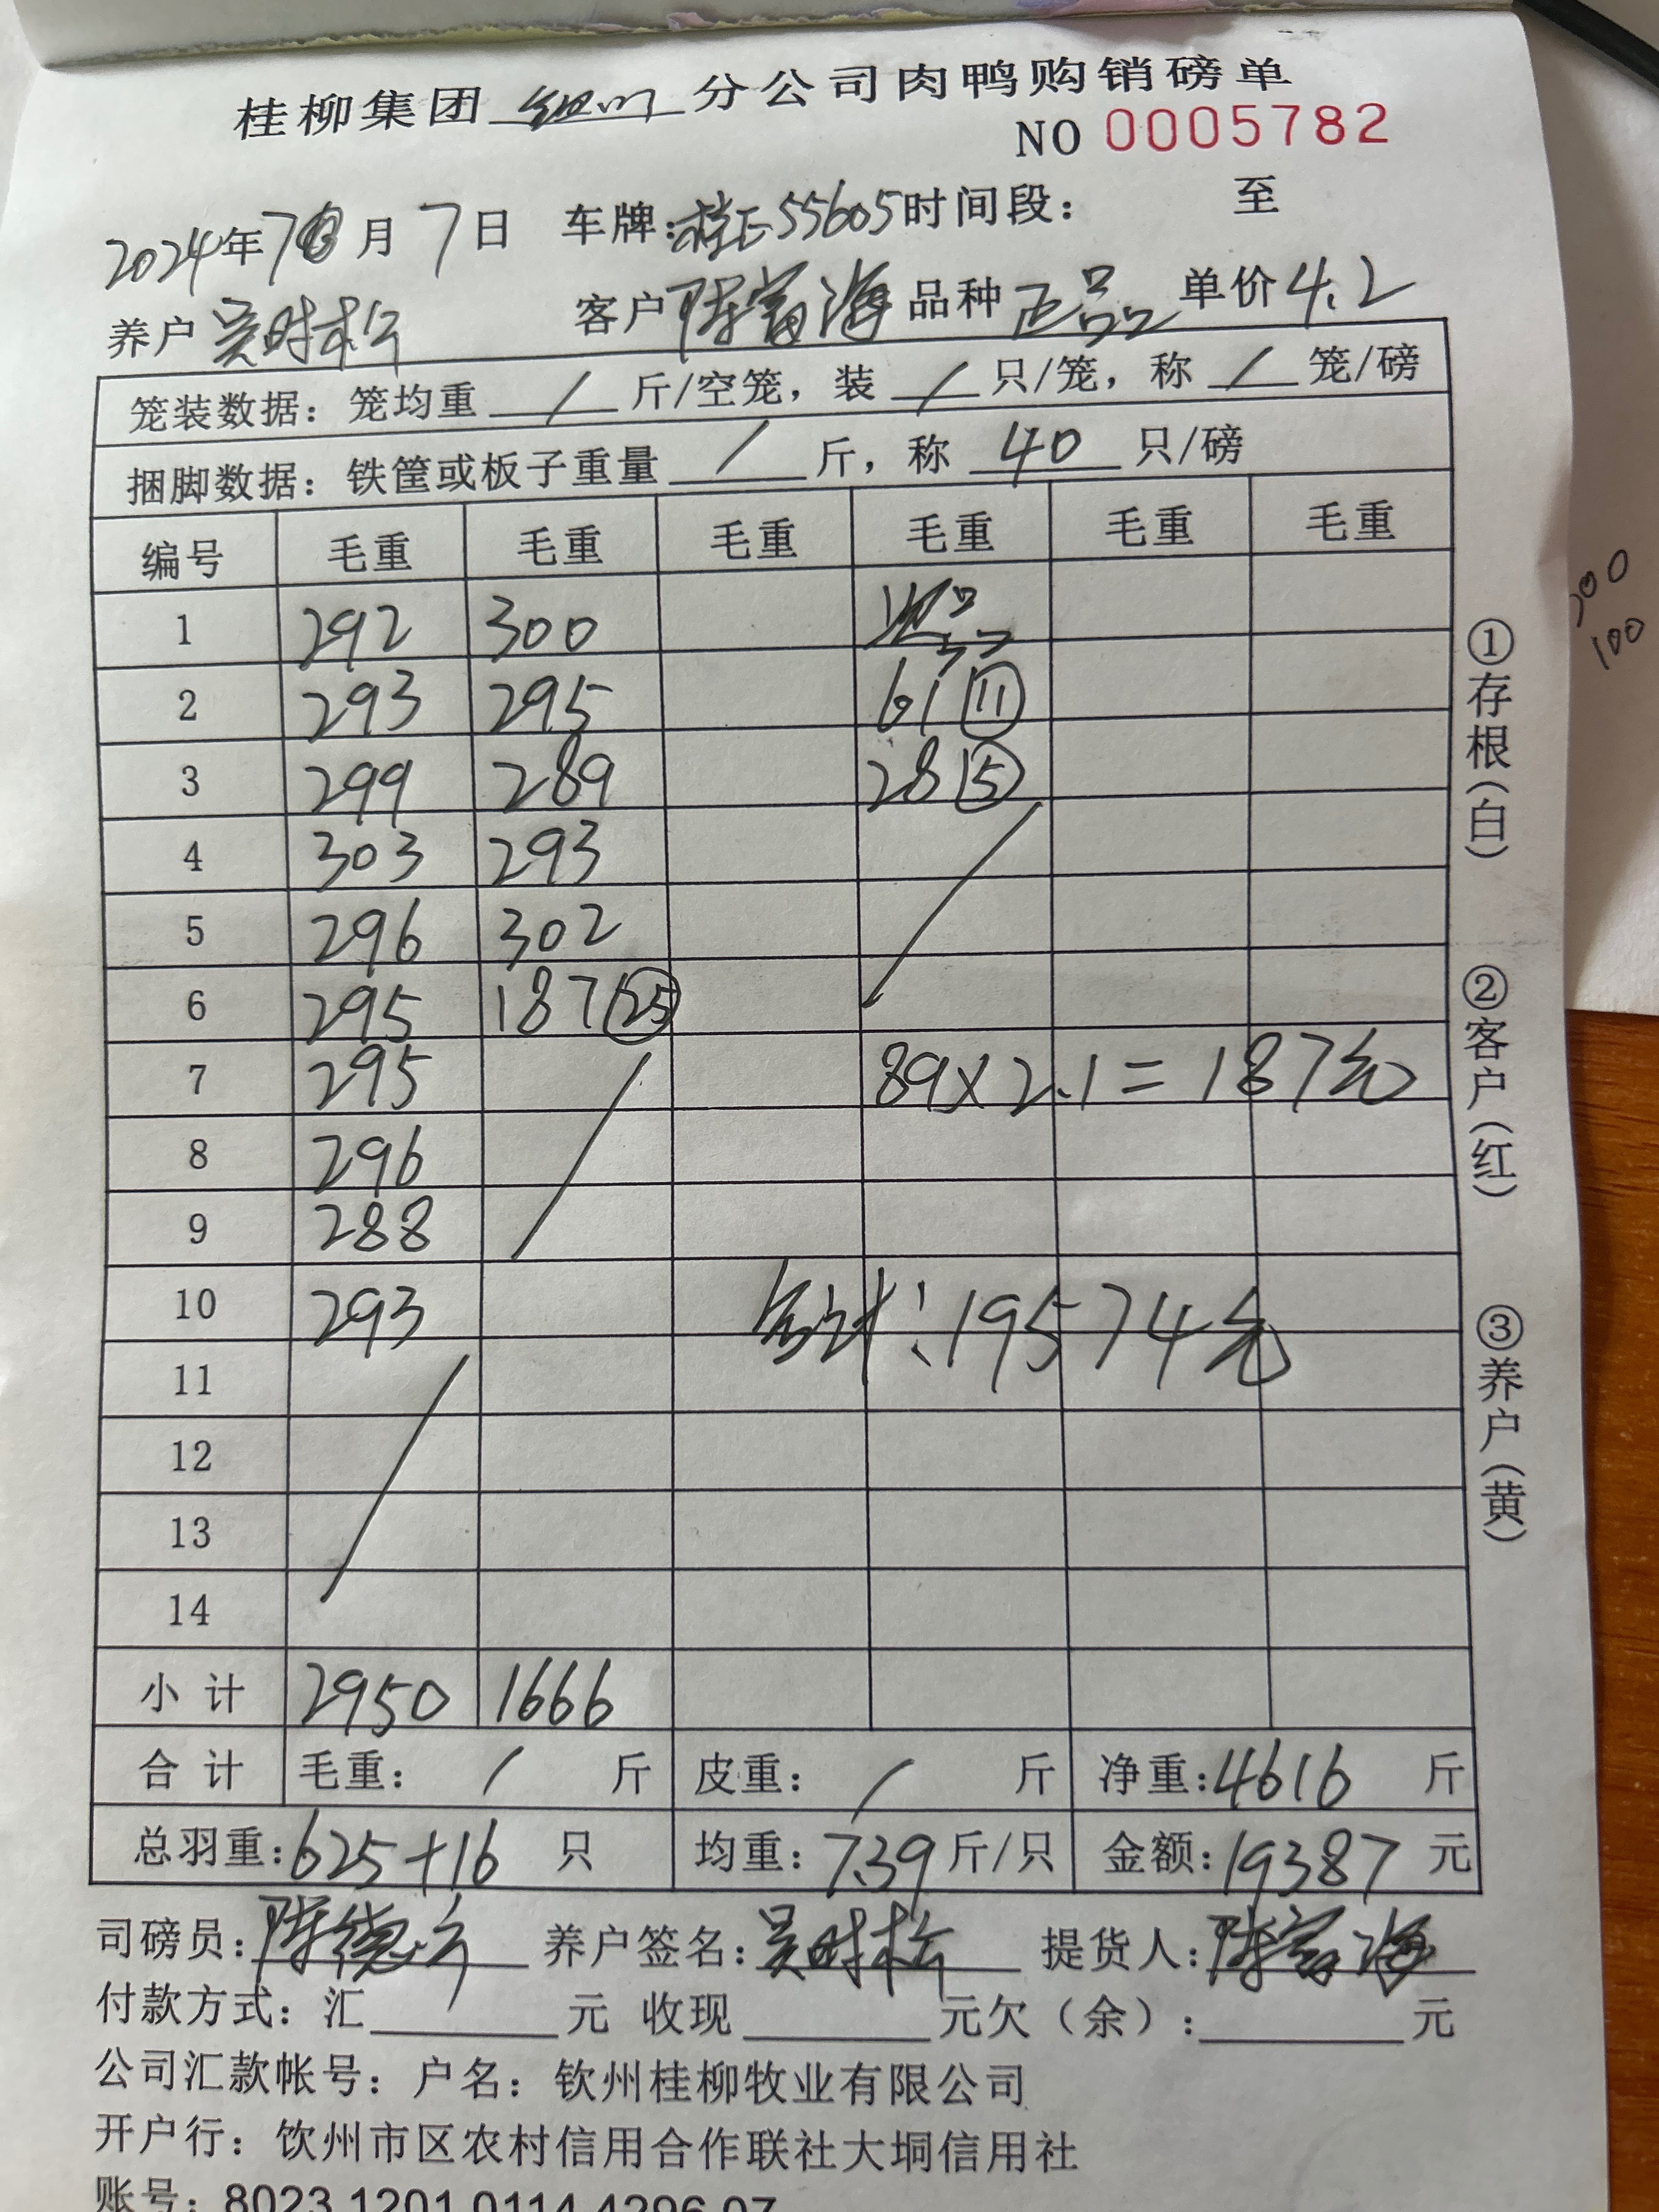 桂柳集团 钦州 分公司肉鸭购销磅单
NO 0005782
2024年7月7日 车牌:桂E55605时间段: 至
养户 吴时松 客户 陈富海 品种 正品 单价 4.2
笼装数据: 笼均重 / 斤/空笼, 装 / 只/笼, 称 / 笼/磅
捆脚数据: 铁筐或板子重量 / 斤, 称 40 只/磅
编号 毛重 毛重 毛重 毛重 毛重 毛重
1 292 300
2 293 295 61 ⑪
3 299 289 28 ⑤
4 303 293
5 296 302
6 295 187 ㉕
7 295 89×2.1=187元
8 296
9 288
10 293 合计:19574元
11
12
13
14
小计 2950 1666
合计 毛重: / 斤 皮重: / 斤 净重:4616 斤
总羽重:625+16 只 均重:7.39斤/只 金额:19387元
司磅员: 陈德 养户签名: 吴时松 提货人: 陈富海
付款方式: 汇 元 收现 元欠(余): 元
公司汇款帐号: 户名: 钦州桂柳牧业有限公司
开户行: 钦州市区农村信用合作联社大垌信用社
账号: 8023 1201 0114 4296 07
①存根(白)
②客户(红)
③养户(黄)
100